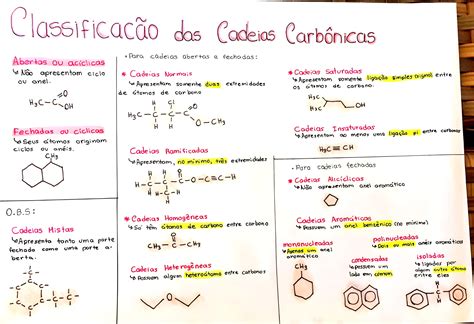 Classificação das Cadeias Carbônicas
Abertas ou acíclicas
↳ Não apresentam ciclo
ou anel.
H₃C-C
O
OH
Fechadas ou cíclicas
↳ Seus átomos originam
ciclos ou anéis.
CH₃
O.B.S:
Cadeias Mistas
↳ Apresenta tanto uma parte
fechada como uma parte a-
berta.
• Para cadeias abertas e fechadas:
* Cadeias Normais
↳ Apresentam somente duas extremidades
de átomos de carbono.
O-CH₃
Cadeias Ramificadas
↳ Apresentam, no mínimo, três extremidades
Cadeias Homogêneas
↳ Só têm átomos de carbono entre carbonos
CH₃-C-CH₃
O
Cadeias Heterogêneas
↳ Possuem algum heteroátomo entre carbonos
O
* Cadeias Saturadas
↳ Apresentam somente ligação simples (sigma) entre
os átomos de carbono.
H₃C
H₃C
OH
Cadeias Insaturadas
↳ Apresentam ao menos uma ligação pi entre carbonos
HC≡CH
• Para cadeias fechadas
* Cadeias Alicíclicas
↳ Não apresentam anel aromático
Cadeias Aromáticas
↳ Possuem um anel benzênico (no mínimo)
mononucleadas
↳ Apenas um anel
aromático
CH₃
polinucleadas
↳ Dois ou mais anéis aromáticos
condensadas
↳ Possuem um
lado em comum
isoladas
↳ ligados por
algum outro átomo
entre eles